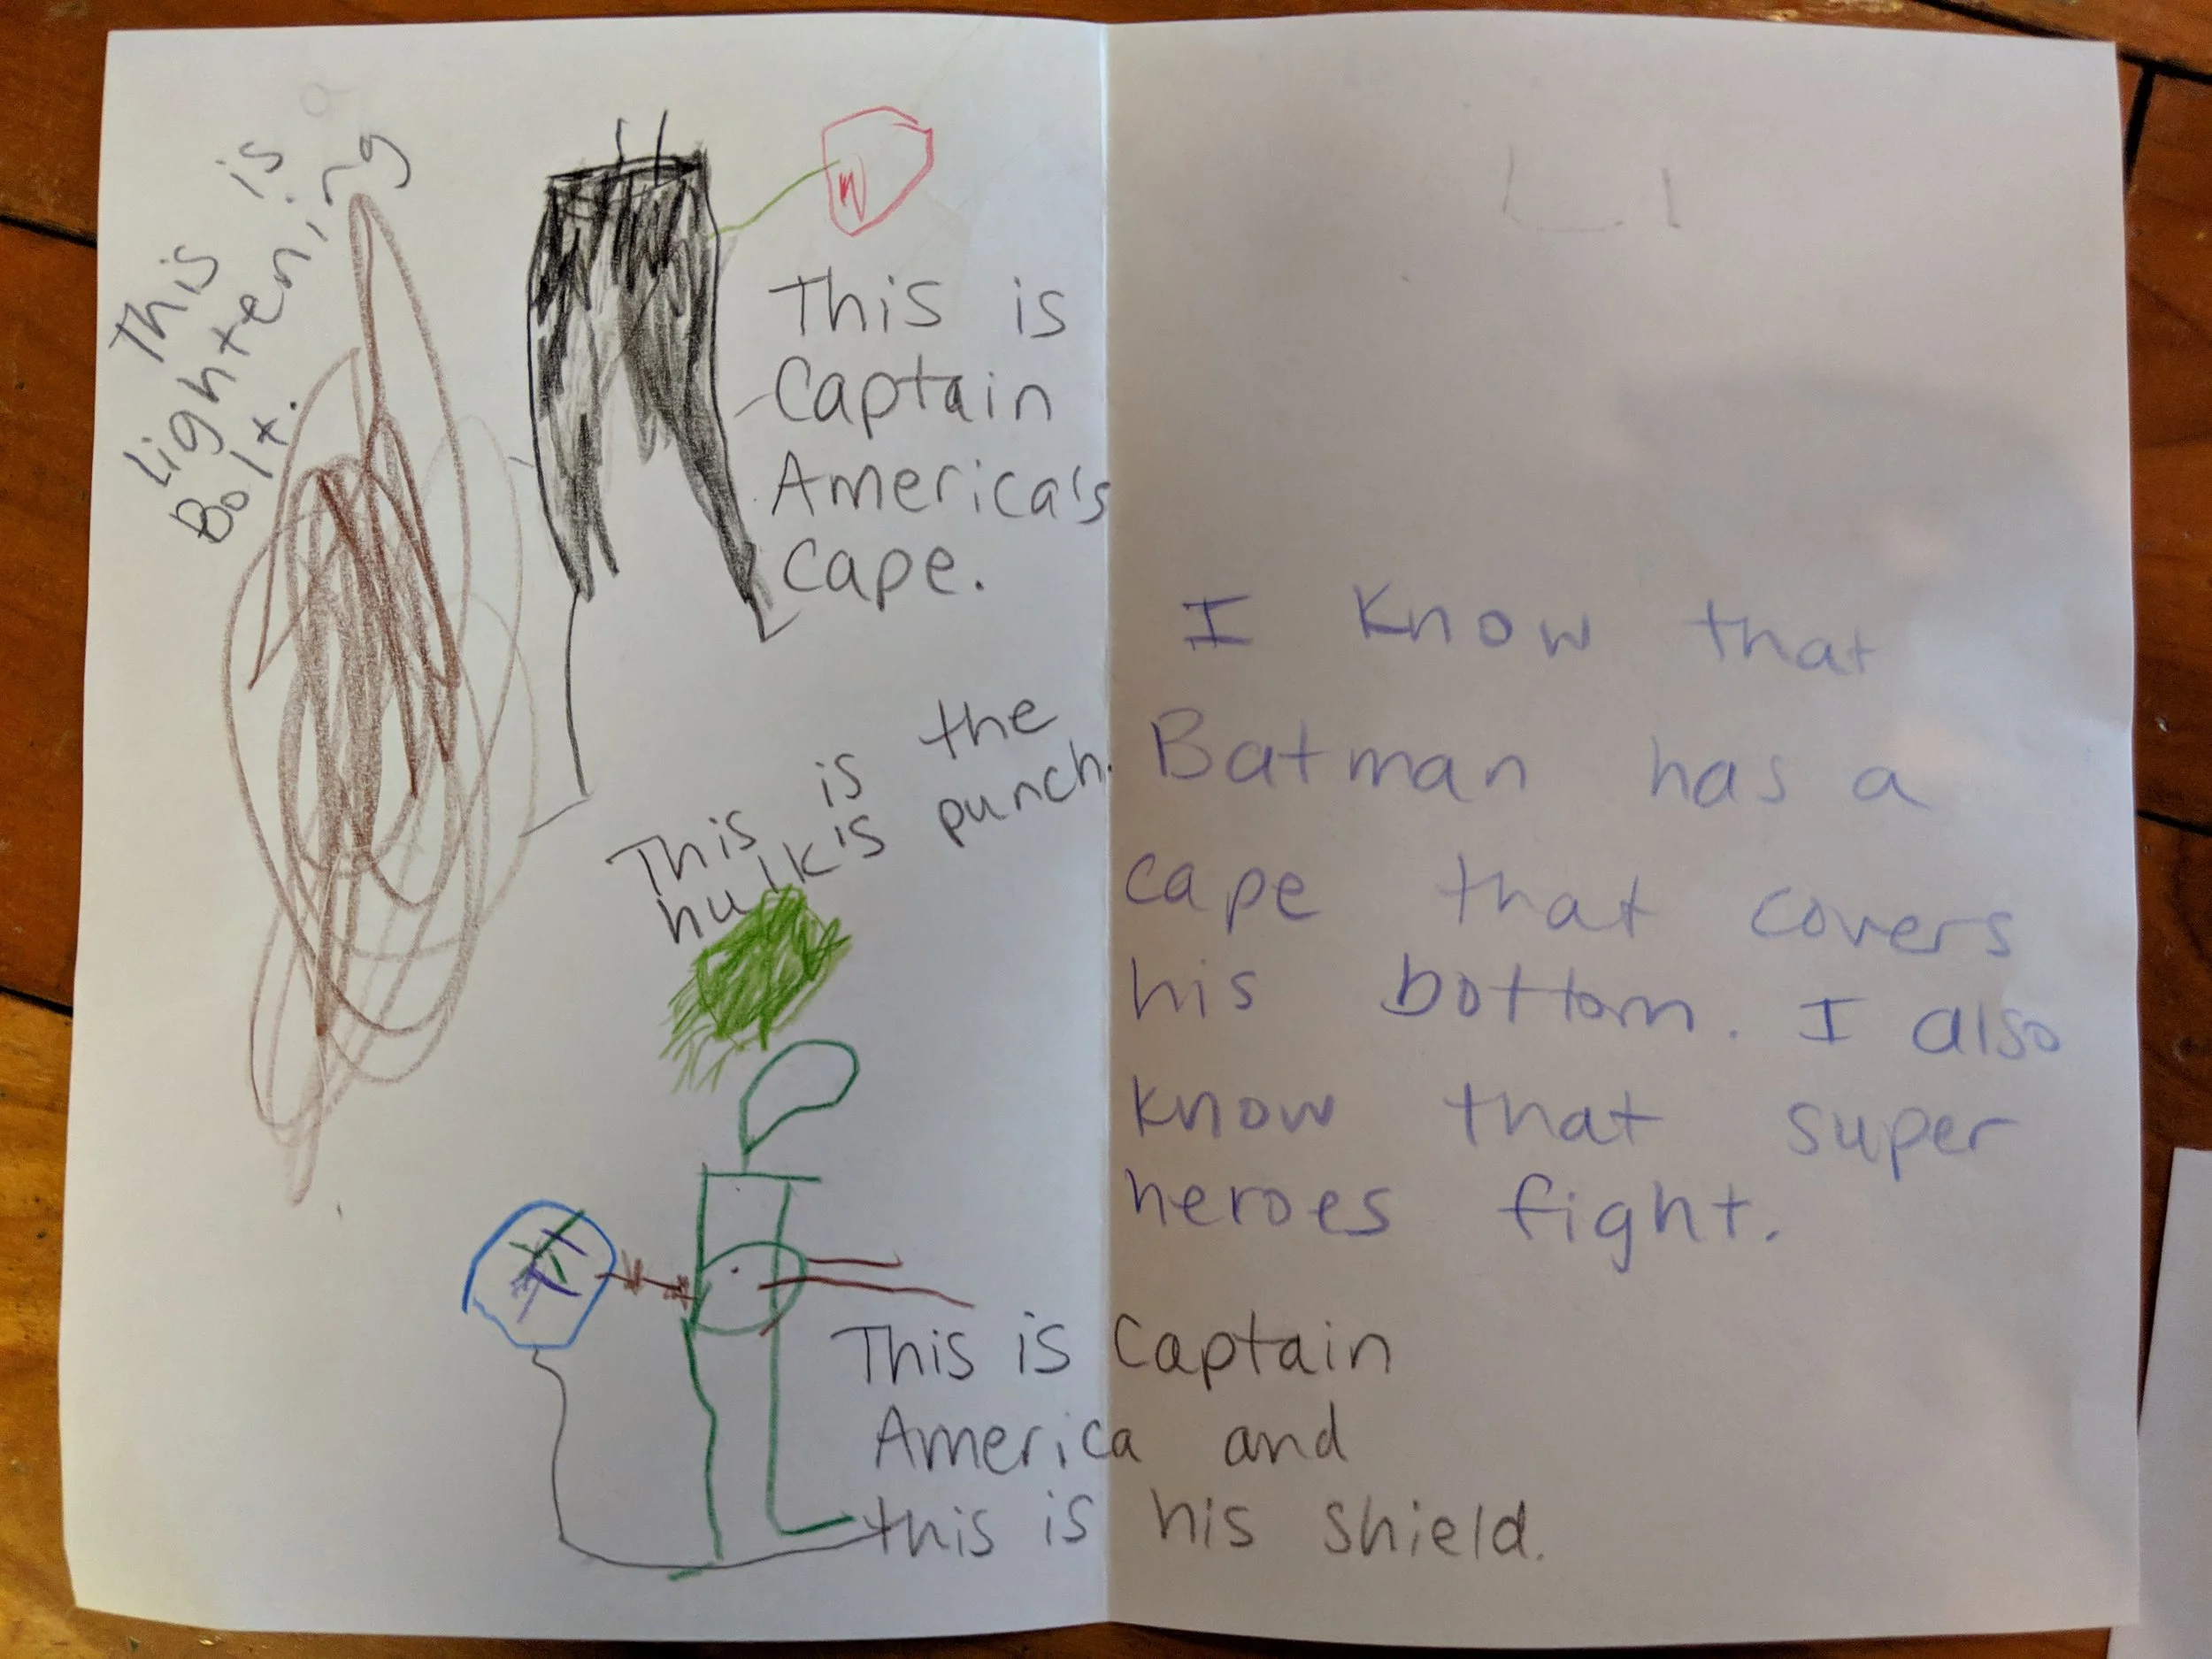 This is a
Lightening
Bolt.
This is
Captain
America's
cape.
This is the
hulk's punch.
I know that
Batman has a
cape that covers
his bottom. I also
know that super
heroes fight.
This is Captain
America and
this is his shield.